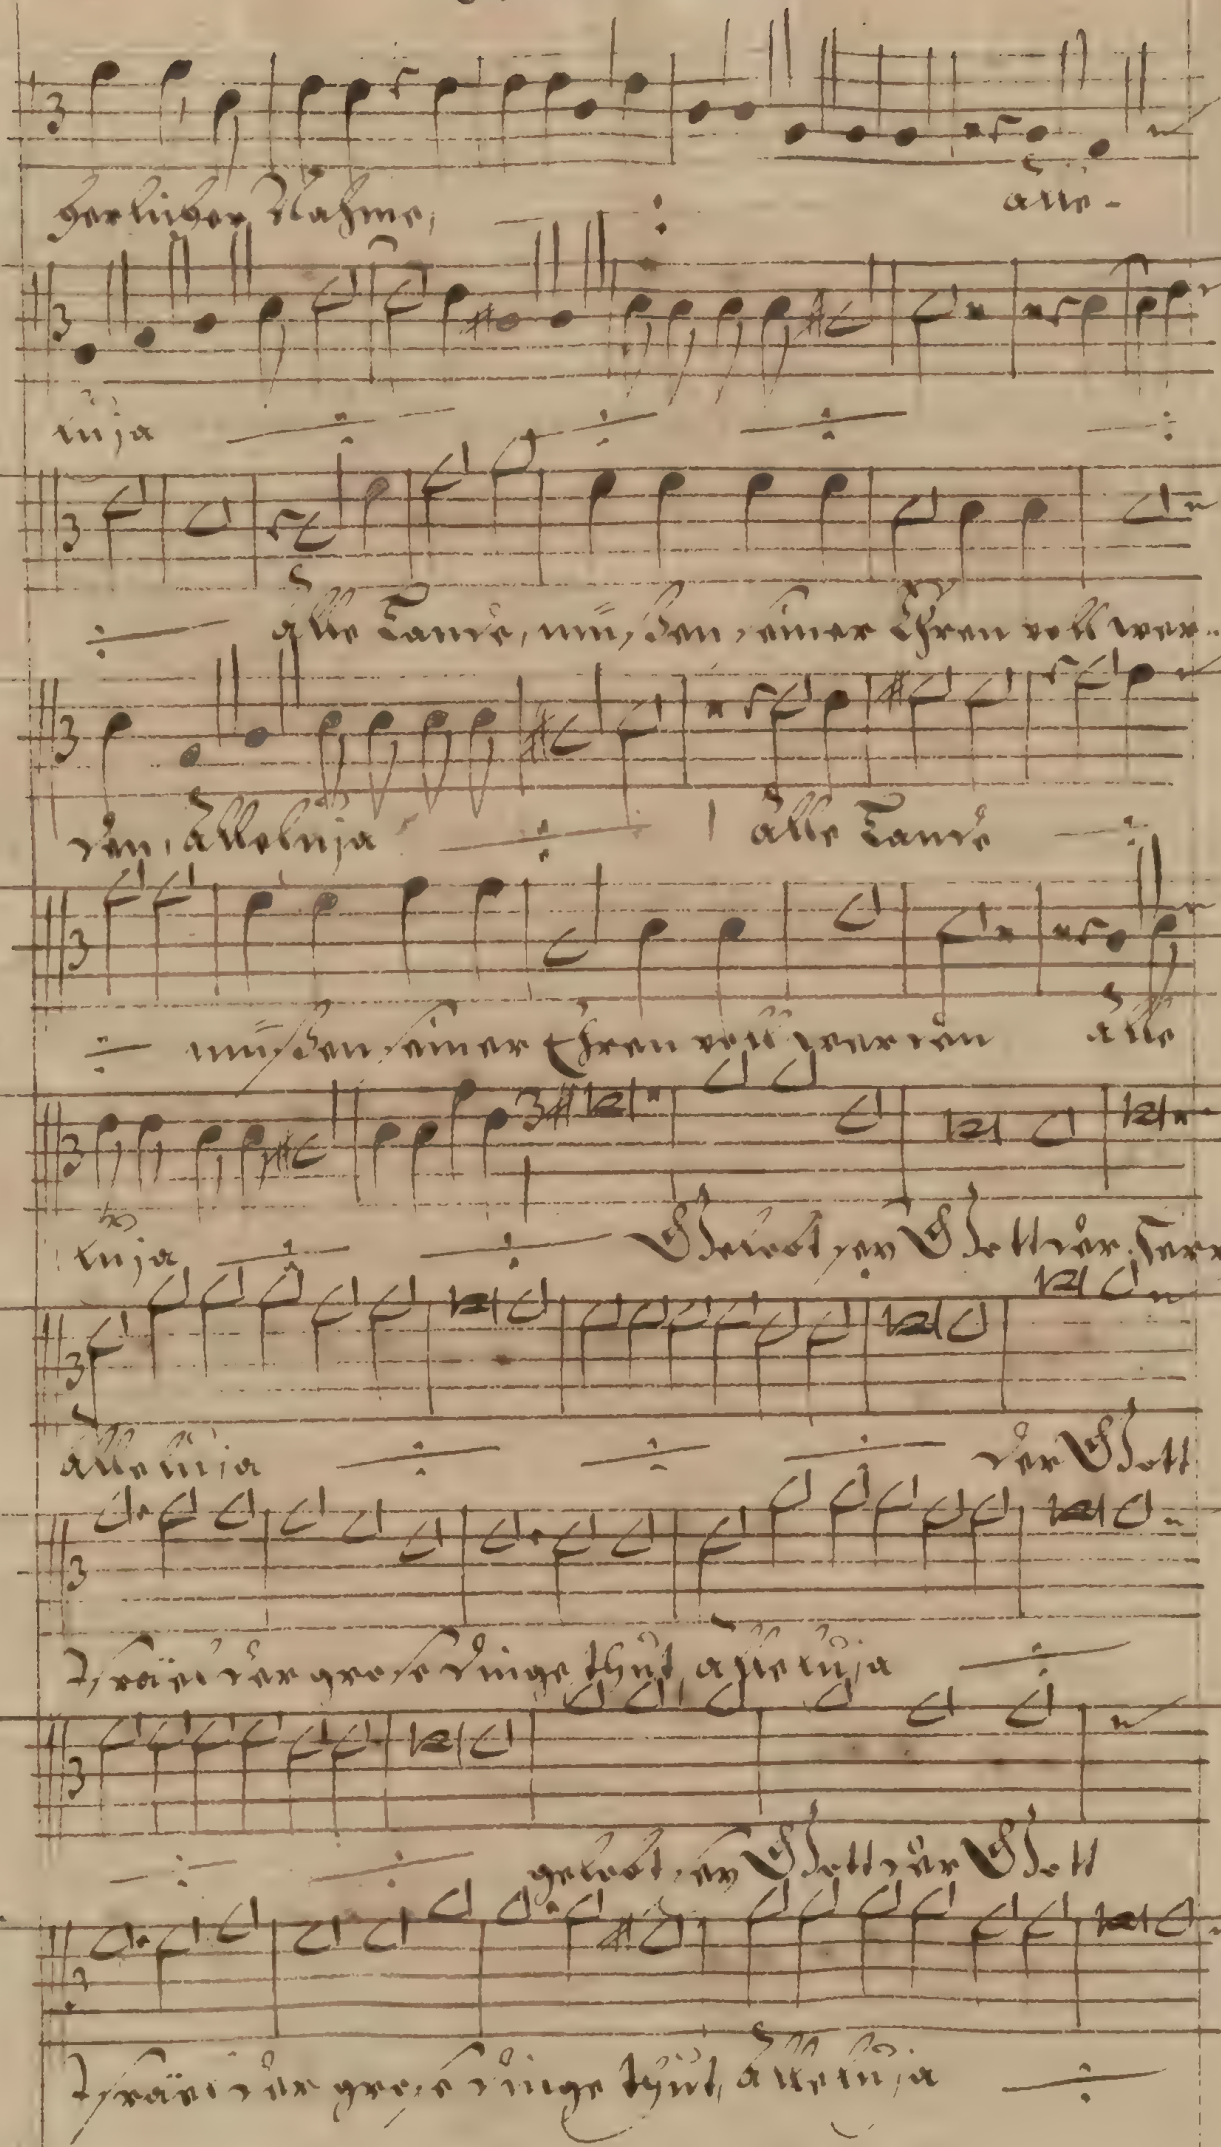 herlicher Nahme, alle-
luja
alle Lande, müssen seiner Ehren voll wer-
den, Alleluja alle Lande
müssen seiner Ehren voll werden alle
luja Gelobt sey Gott der Herr
Alleluja der Gott
Israel der grose dinge thut, alleluja
gelobt sey Gott der Gott
Israel der grose dinge thut, Alleluja